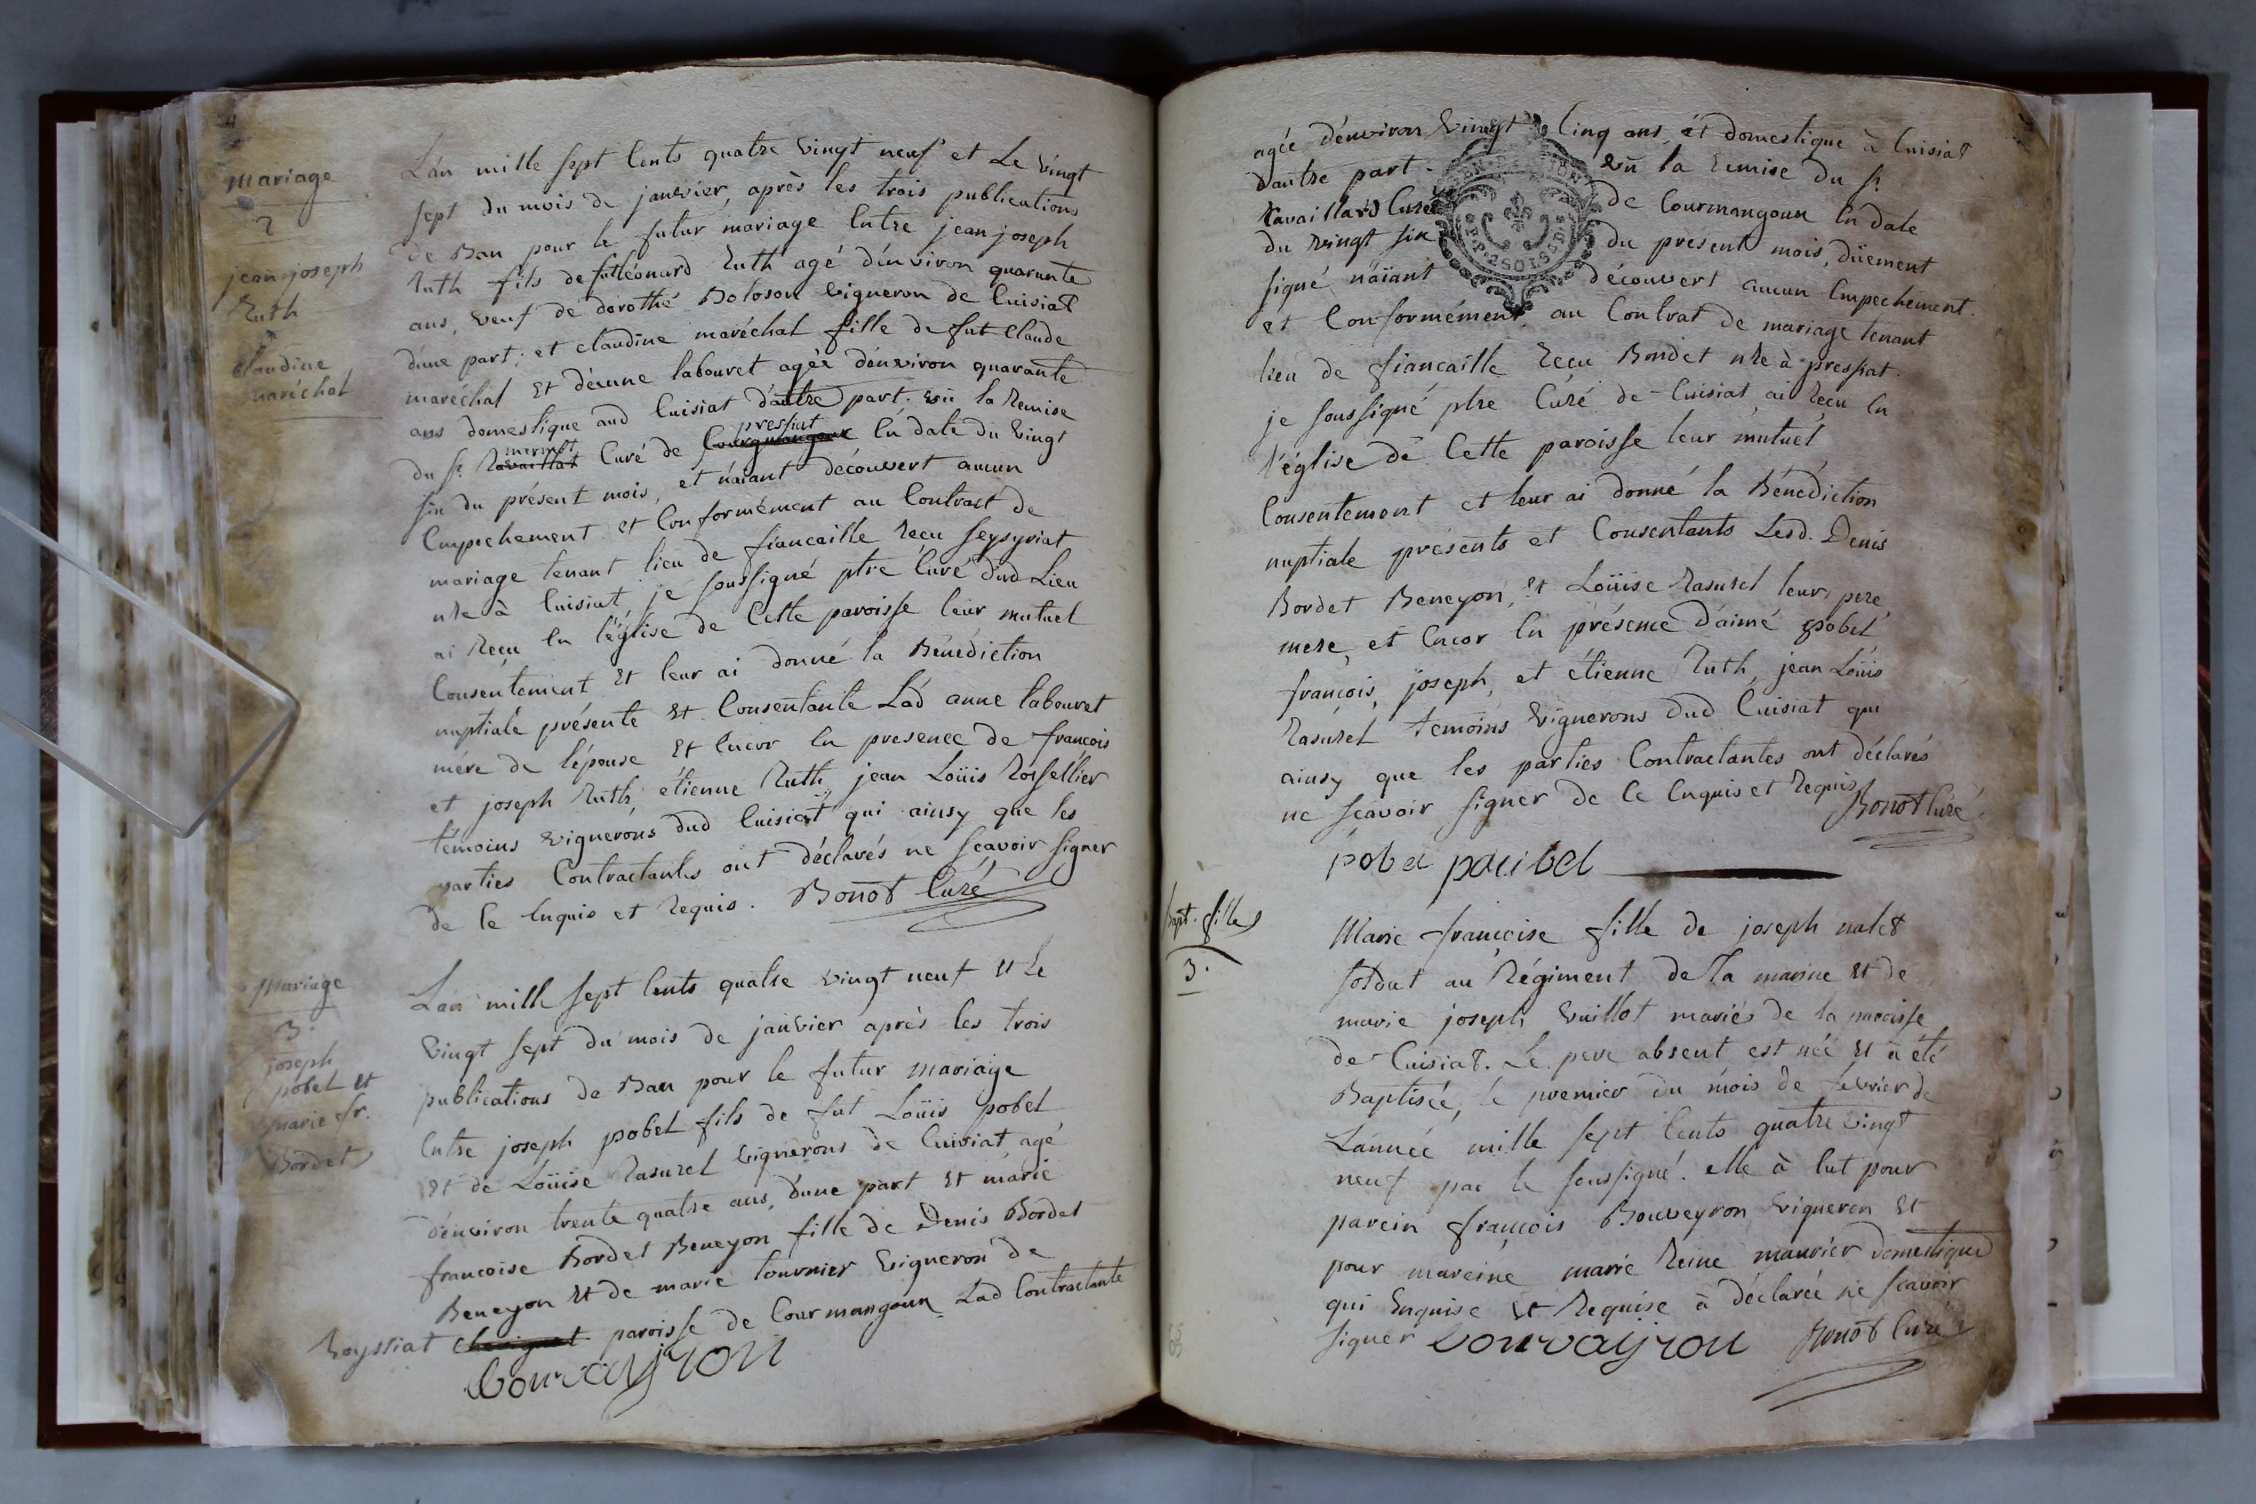 Mariage
2
jean joseph
Ruth
claudine
maréchal
L'an mille sept Cents quatre vingt neuf et Le vingt
sept du mois de janvier, après les trois publications
de Ban pour le futur mariage Entre jean joseph
Ruth fils de fut léonard Ruth agé d'environ quarante
ans, veuf de dorothé Boloson vigneron de Cuisiat
d'une part; et claudine maréchal fille de fut Claude
maréchal Et d'éanne labouret agée d'environ quarante
ans domestique aud Cuisiat d'autre part. vû la Remise
du Sr. Curé de pressiat En date du vingt
six du présent mois, et n'aïant découvert aucun
Empechement et Conformément au Contract de
mariage tenant lieu de fiancaille Reçu seysyriat
nre à Cuisiat, je soussigné ptre Curé dud Lieu
ai Reçu En l'église de Cette paroisse leur mutuel
Consentement Et leur ai donné la Bénédiction
nuptiale présente Et Consentante Lad anne labouret
mére de l'épouse Et Encor En presence de françois
et joseph Ruth, étienne Ruth, jean Loüis Rossellier
témoins vignerons dud Cuisiat qui ainsy que les
parties Contractantes ont déclarés ne scavoir signer
de Ce Enquis et Requis. Bonot Curé
Mariage
3.
joseph
pobel Et
marie fr.
Bordet
L'an mille sept Cents quatre vingt neuf Et Le
vingt sept du mois de janvier après les trois
publications de Ban pour le futur mariage
Entre joseph pobel fils de fut Loüis pobel
Et de Loüise Rasurel vignerons de Cuisiat, agé
d'environ trente quatre ans, d'une part Et marie
francoise Bordet Beneyon fille de Denis Bordet
Beneyon Et de marie tournier vigneron de
Royssiat paroisse de Courmangoux Lad Contractante
bouvayron
agée d'environ vingt Cinq ans, et domestique à Cuisiat
d'autre part. vû la Remise du Sr.
Ravaillard Curé de Courmangoux En date
du vingt six du présent mois, düement
signé n'aïant découvert aucun Empechement.
et Conformément, au Contrat de mariage tenant
lieu de fiancaille Reçu Bondet nre à pressiat.
je soussigné ptre Curé de Cuisiat ai Reçu En
l'église de Cette paroisse leur mutuel
Consentement et leur ai donné la Bénédiction
nuptiale présents et Consentants Lesd. Denis
Bordet Beneyon, et Loüise Rasurel leurs pere,
mere, et Encor En présence d'aimé pobel
françois, joseph, et étienne Ruth, jean Loüis
Rasurel temoins vignerons dud Cuisiat qui
ainsy que les parties Contractantes ont déclarés
ne scavoir signer de Ce Enquis et Requis Bonot Curé
pobel
Bapt. fille
3.
Marie françoise fille de joseph nalet
soldat au Régiment de la marine Et de
marie joseph vuillot mariés de la paroisse
de Cuisiat. Le pere absent est née Et a été
Baptisée, le premier du mois de fevrier de
L'année mille sept Cents quatre vingt
neuf par le soussigné. elle à Eut pour
parein françois Bouveyron vigneron Et
pour mareine marie Reine maurier domestique
qui Enquise Et Requise à déclarée ne scavoir
signer bouvayron Bonot Curé